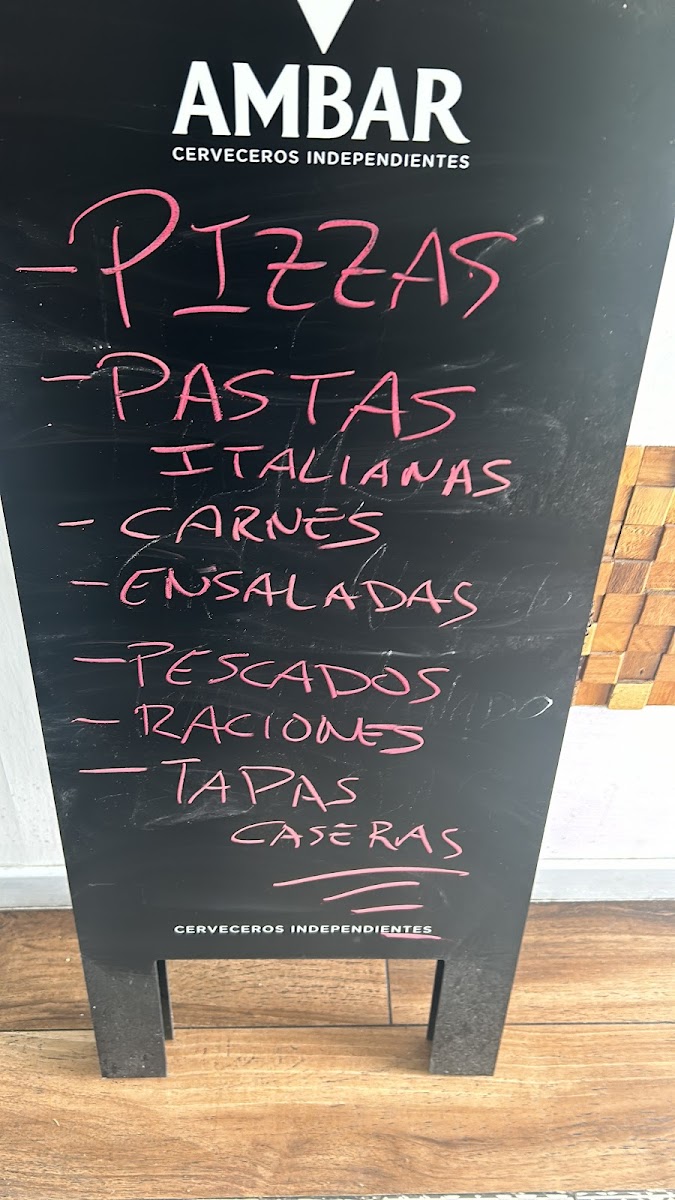 AMBAR
CERVECEROS INDEPENDIENTES
- PIZZAS
- PASTAS
ITALIANAS
- CARNES
- ENSALADAS
- PESCADOS
- RACIONES
- TAPAS
CASERAS
CERVECEROS INDEPENDIENTES